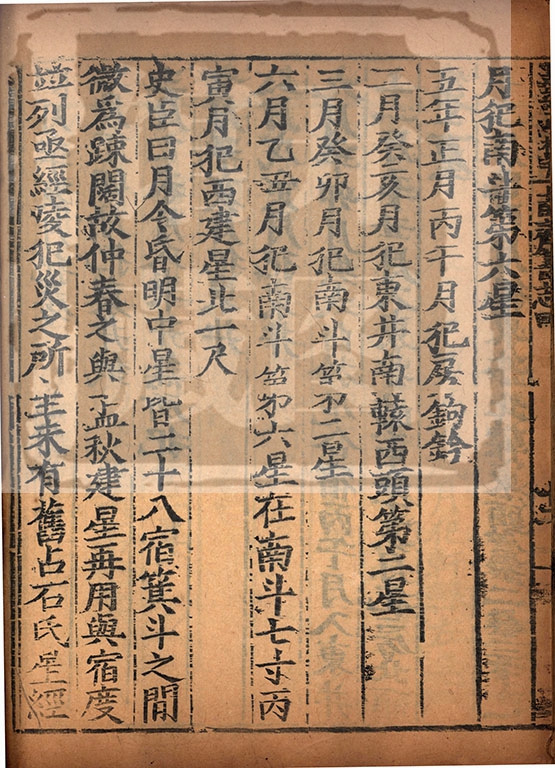 月犯南斗第六星
五年正月丙午月犯房鉤鈐
二月癸亥月犯東井南轅西頭第二星
三月癸卯月犯南斗第二星
六月乙丑月犯南斗第六星在南斗七寸丙
寅月犯西建星北一尺
史臣曰月令昏明中星皆二十八宿箕斗之間
微爲踈闊故仲春之與孟秋建星再用與宿度
並列亟經㥄犯災之所主未有舊占石氏星經